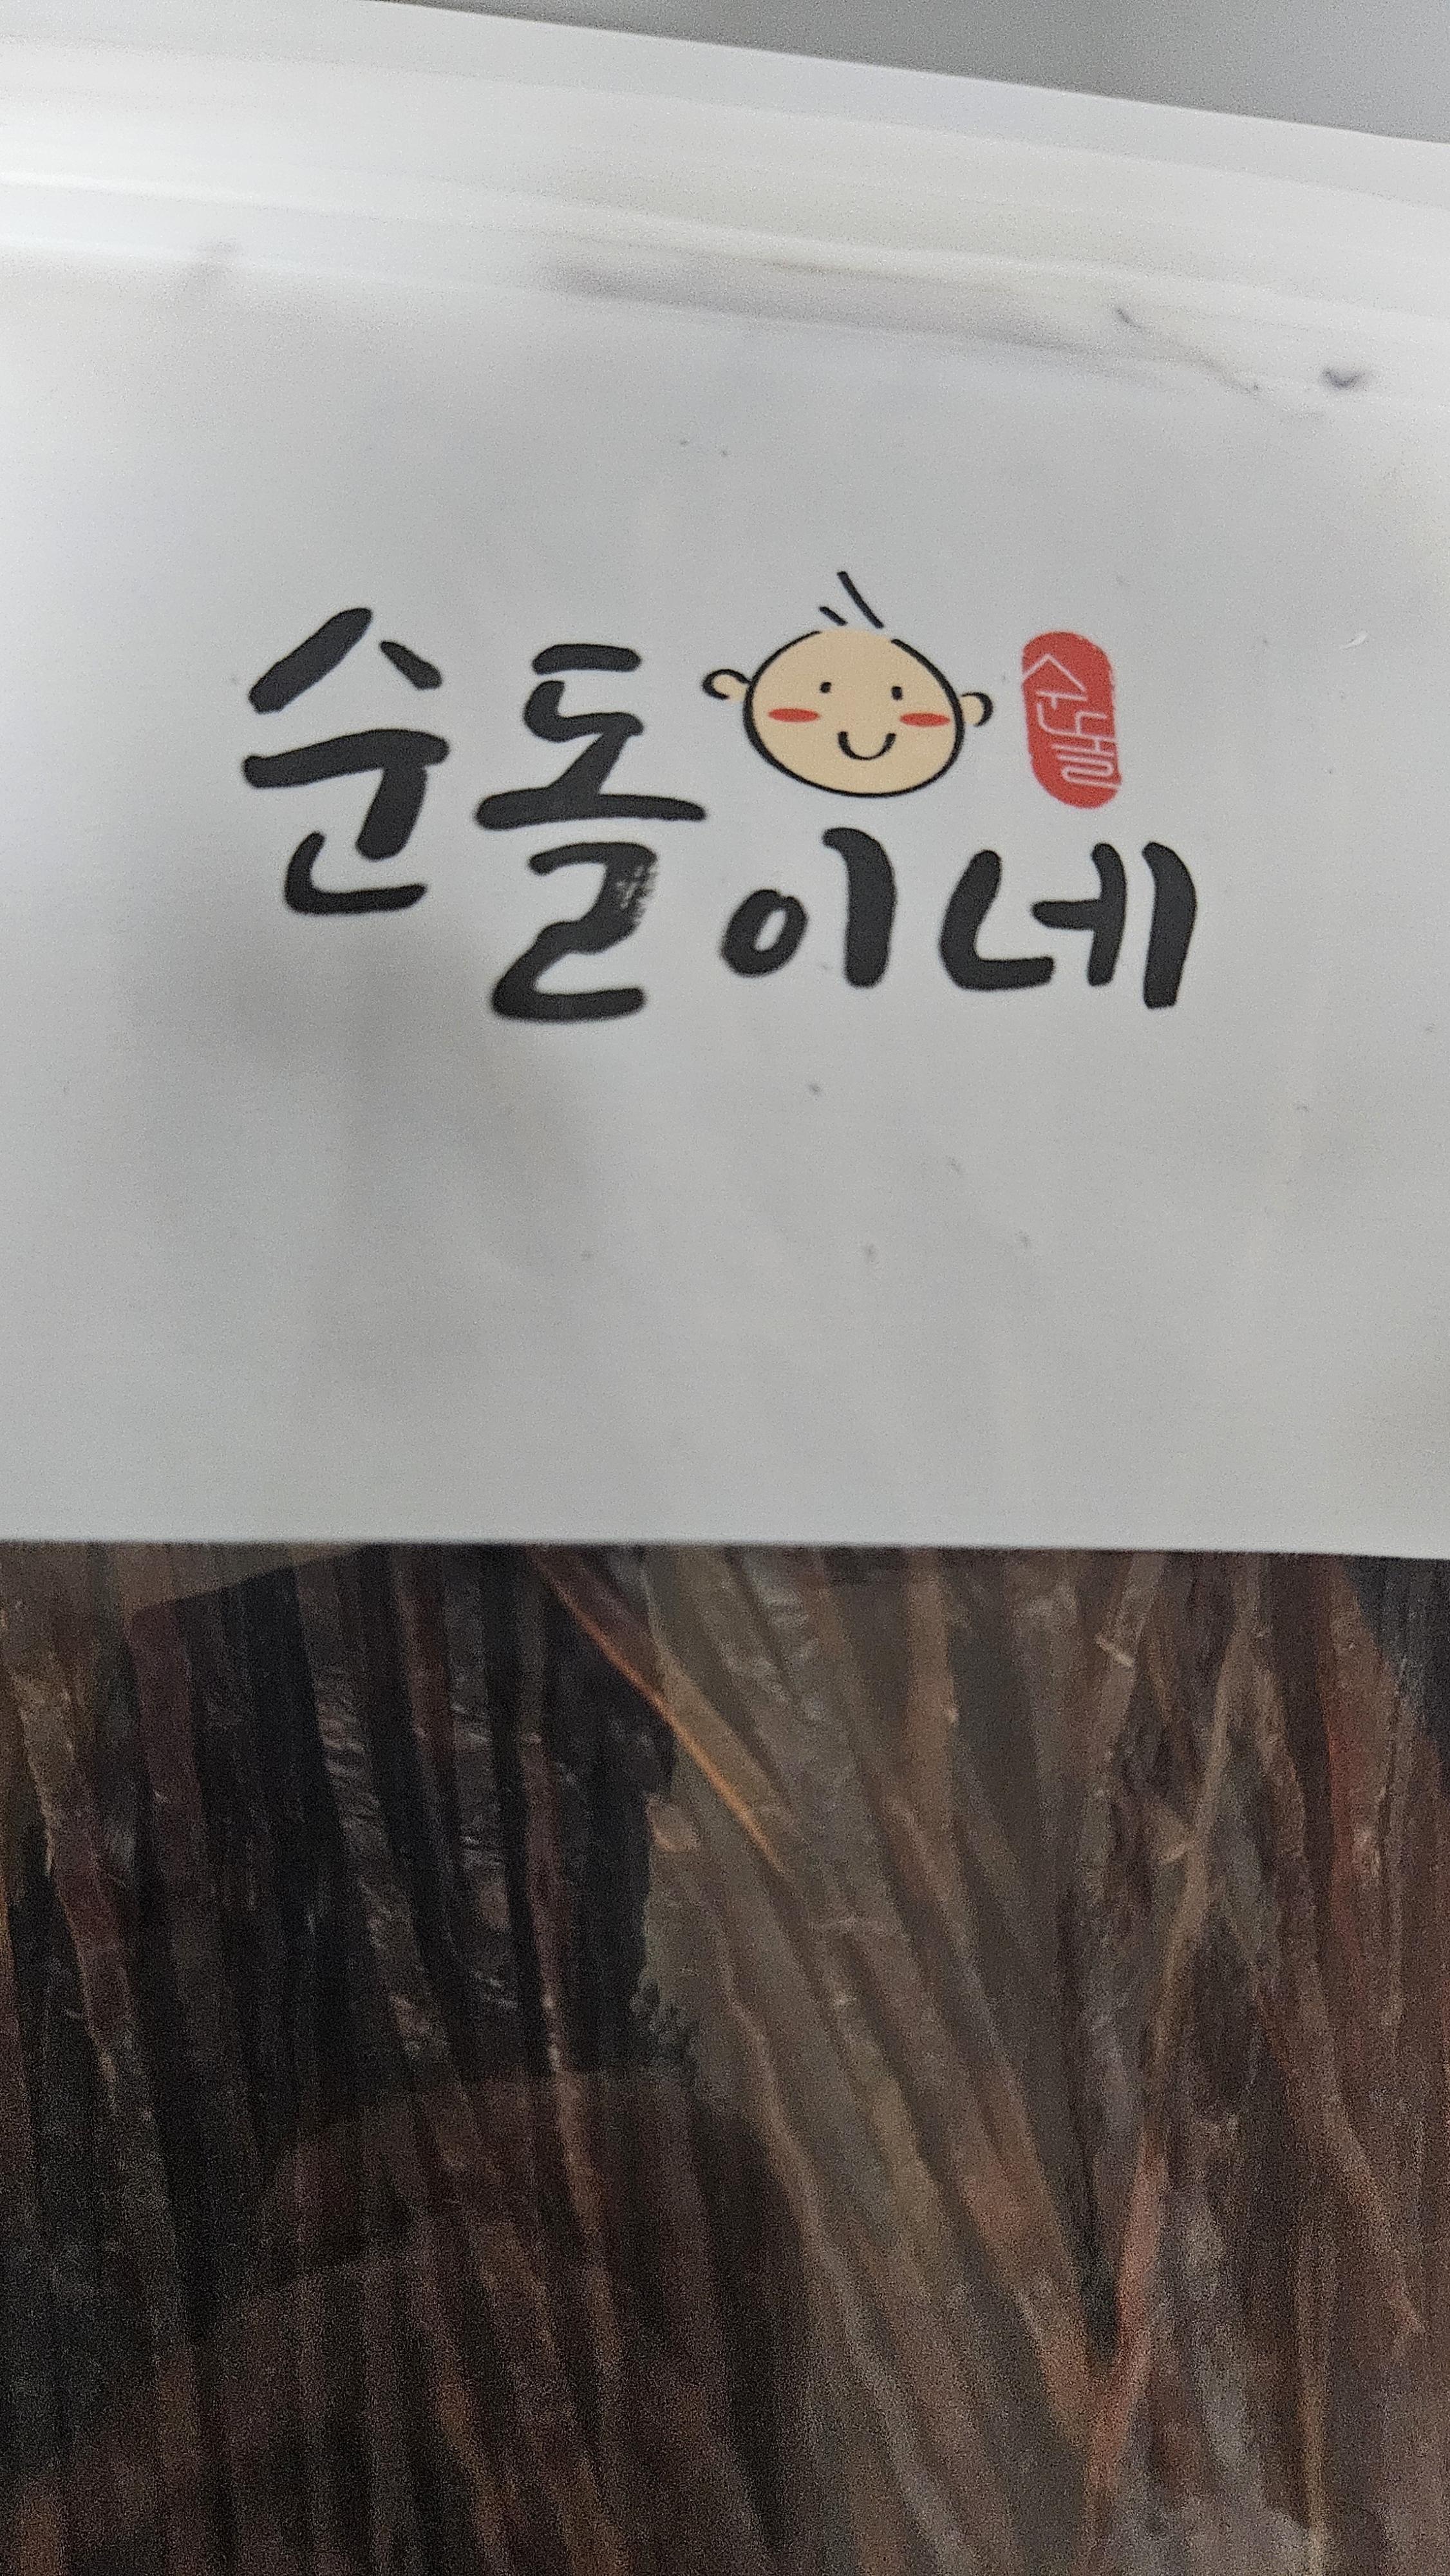 순돌이네
순돌